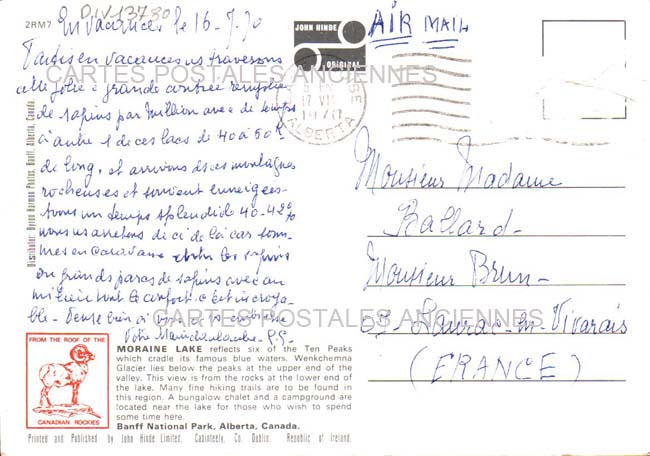 DIV13780
2RM7
En vacances le 16-7-70
JOHN HINDE
ORIGINAL
AIR MAIL
Partis en vacances ns traversons
cette jolie & grande contrée remplie
de sapins par million avec de temps
à autre 1 de ces lacs de 40 à 50 K
de long, et arrivons ds ces montagnes
rocheuses et souvent enneigées
tous un temps splendide 40-42°
nous ns arrêtons di ci de là car som-
mes en caravane
ou grands parcs de sapins avec au
milieu tout le confort c'est incroya-
ble
CARTES POSTALES ANCIENNES
17 VII
1970
ALBERTA
Monsieur Madame
Ballard
Monsieur Brun
07- Lavrac-en-Vivarais
(FRANCE)
CARTES POSTALES ANCIENNES
Distributor: Byron Harmon Photos, Banff, Alberta, Canada.
FROM THE ROOF OF THE
CANADIAN ROCKIES
MORAINE LAKE reflects six of the Ten Peaks
which cradle its famous blue waters. Wenkchemna
Glacier lies below the peaks at the upper end of the
valley. This view is from the rocks at the lower end of
the lake. Many fine hiking trails are to be found in
this region. A bungalow chalet and a campground are
located near the lake for those who wish to spend
some time here.
Banff National Park, Alberta, Canada.
Printed and Published by John Hinde Limited, Cabinteely, Co. Dublin, Republic of Ireland.